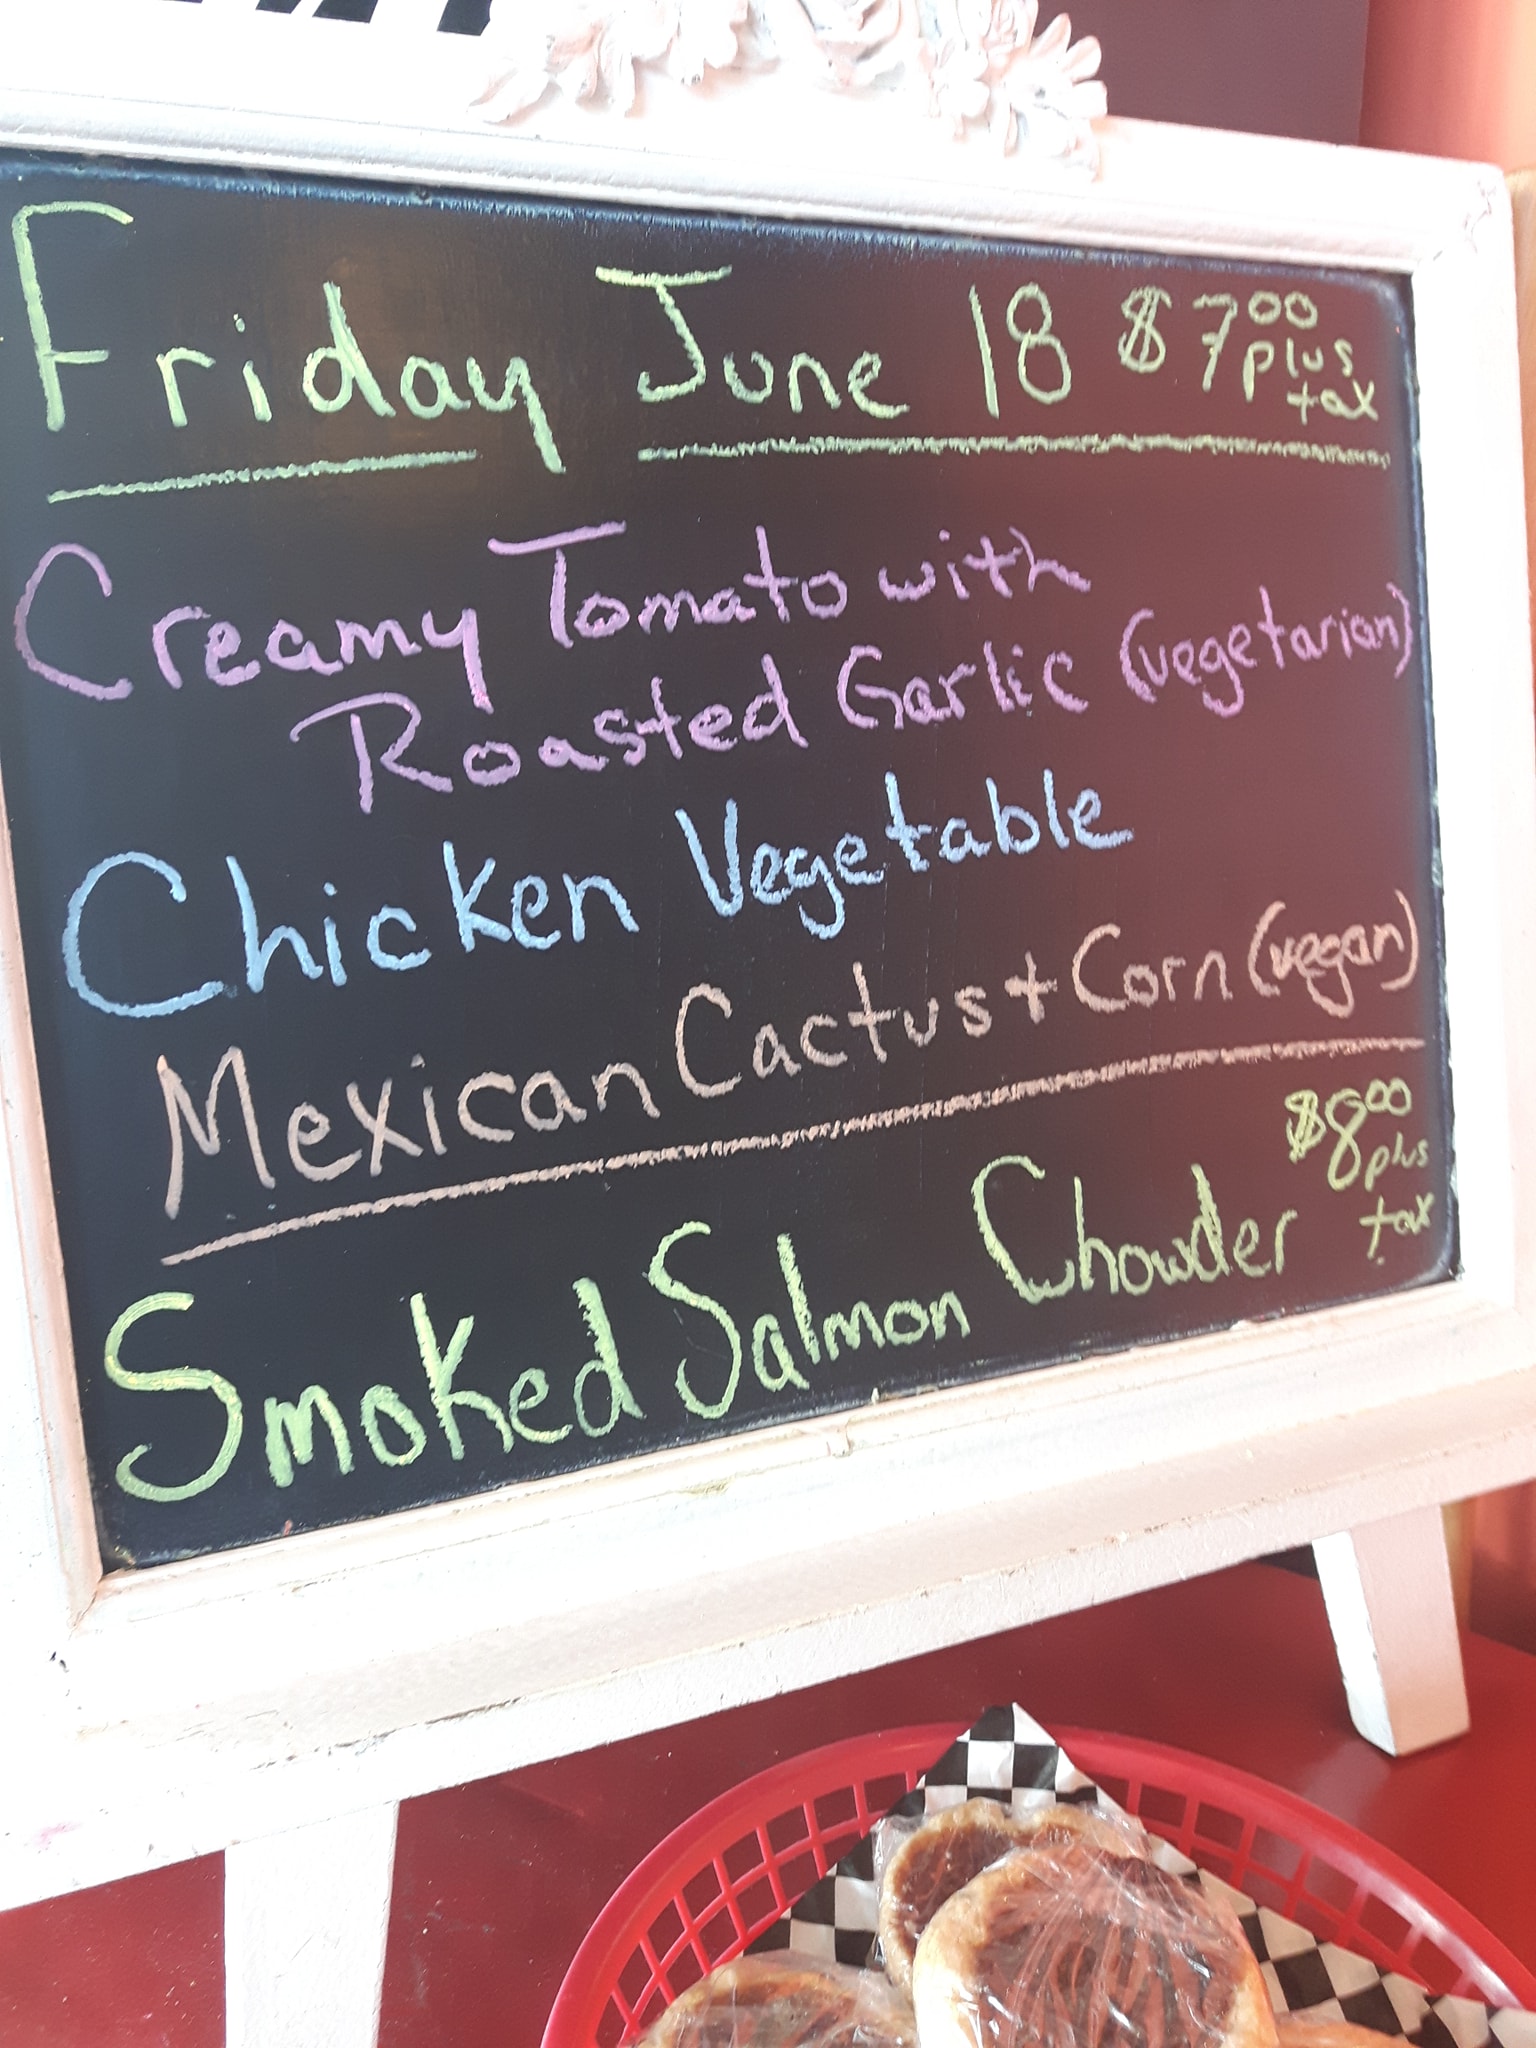 Friday June 18 $7.00 plus tax
Creamy Tomato with
Roasted Garlic (vegetarian)
Chicken Vegetable
Mexican Cactus + Corn (vegan)
$8.00 plus tax
Smoked Salmon Chowder